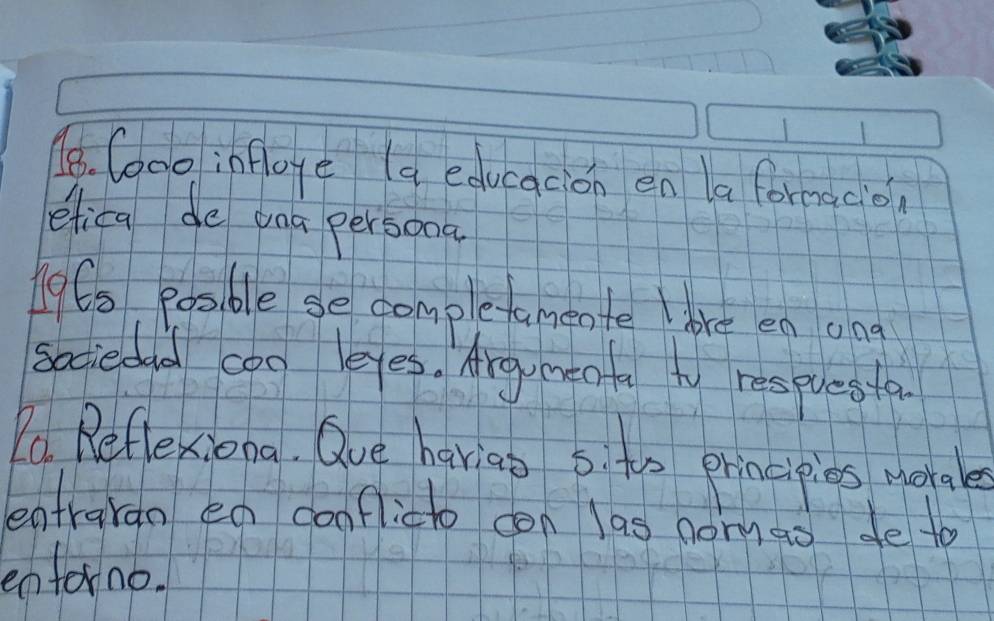 18. Como influye la educación en la formación
ética de una persona.
19 Es posible se completamente libre en una
sociedad con leyes. Argumenta tu respuesta.
20. Reflexiona. Que harias si tus principios morales
entraran en conflicto con las normas de to
entorno.